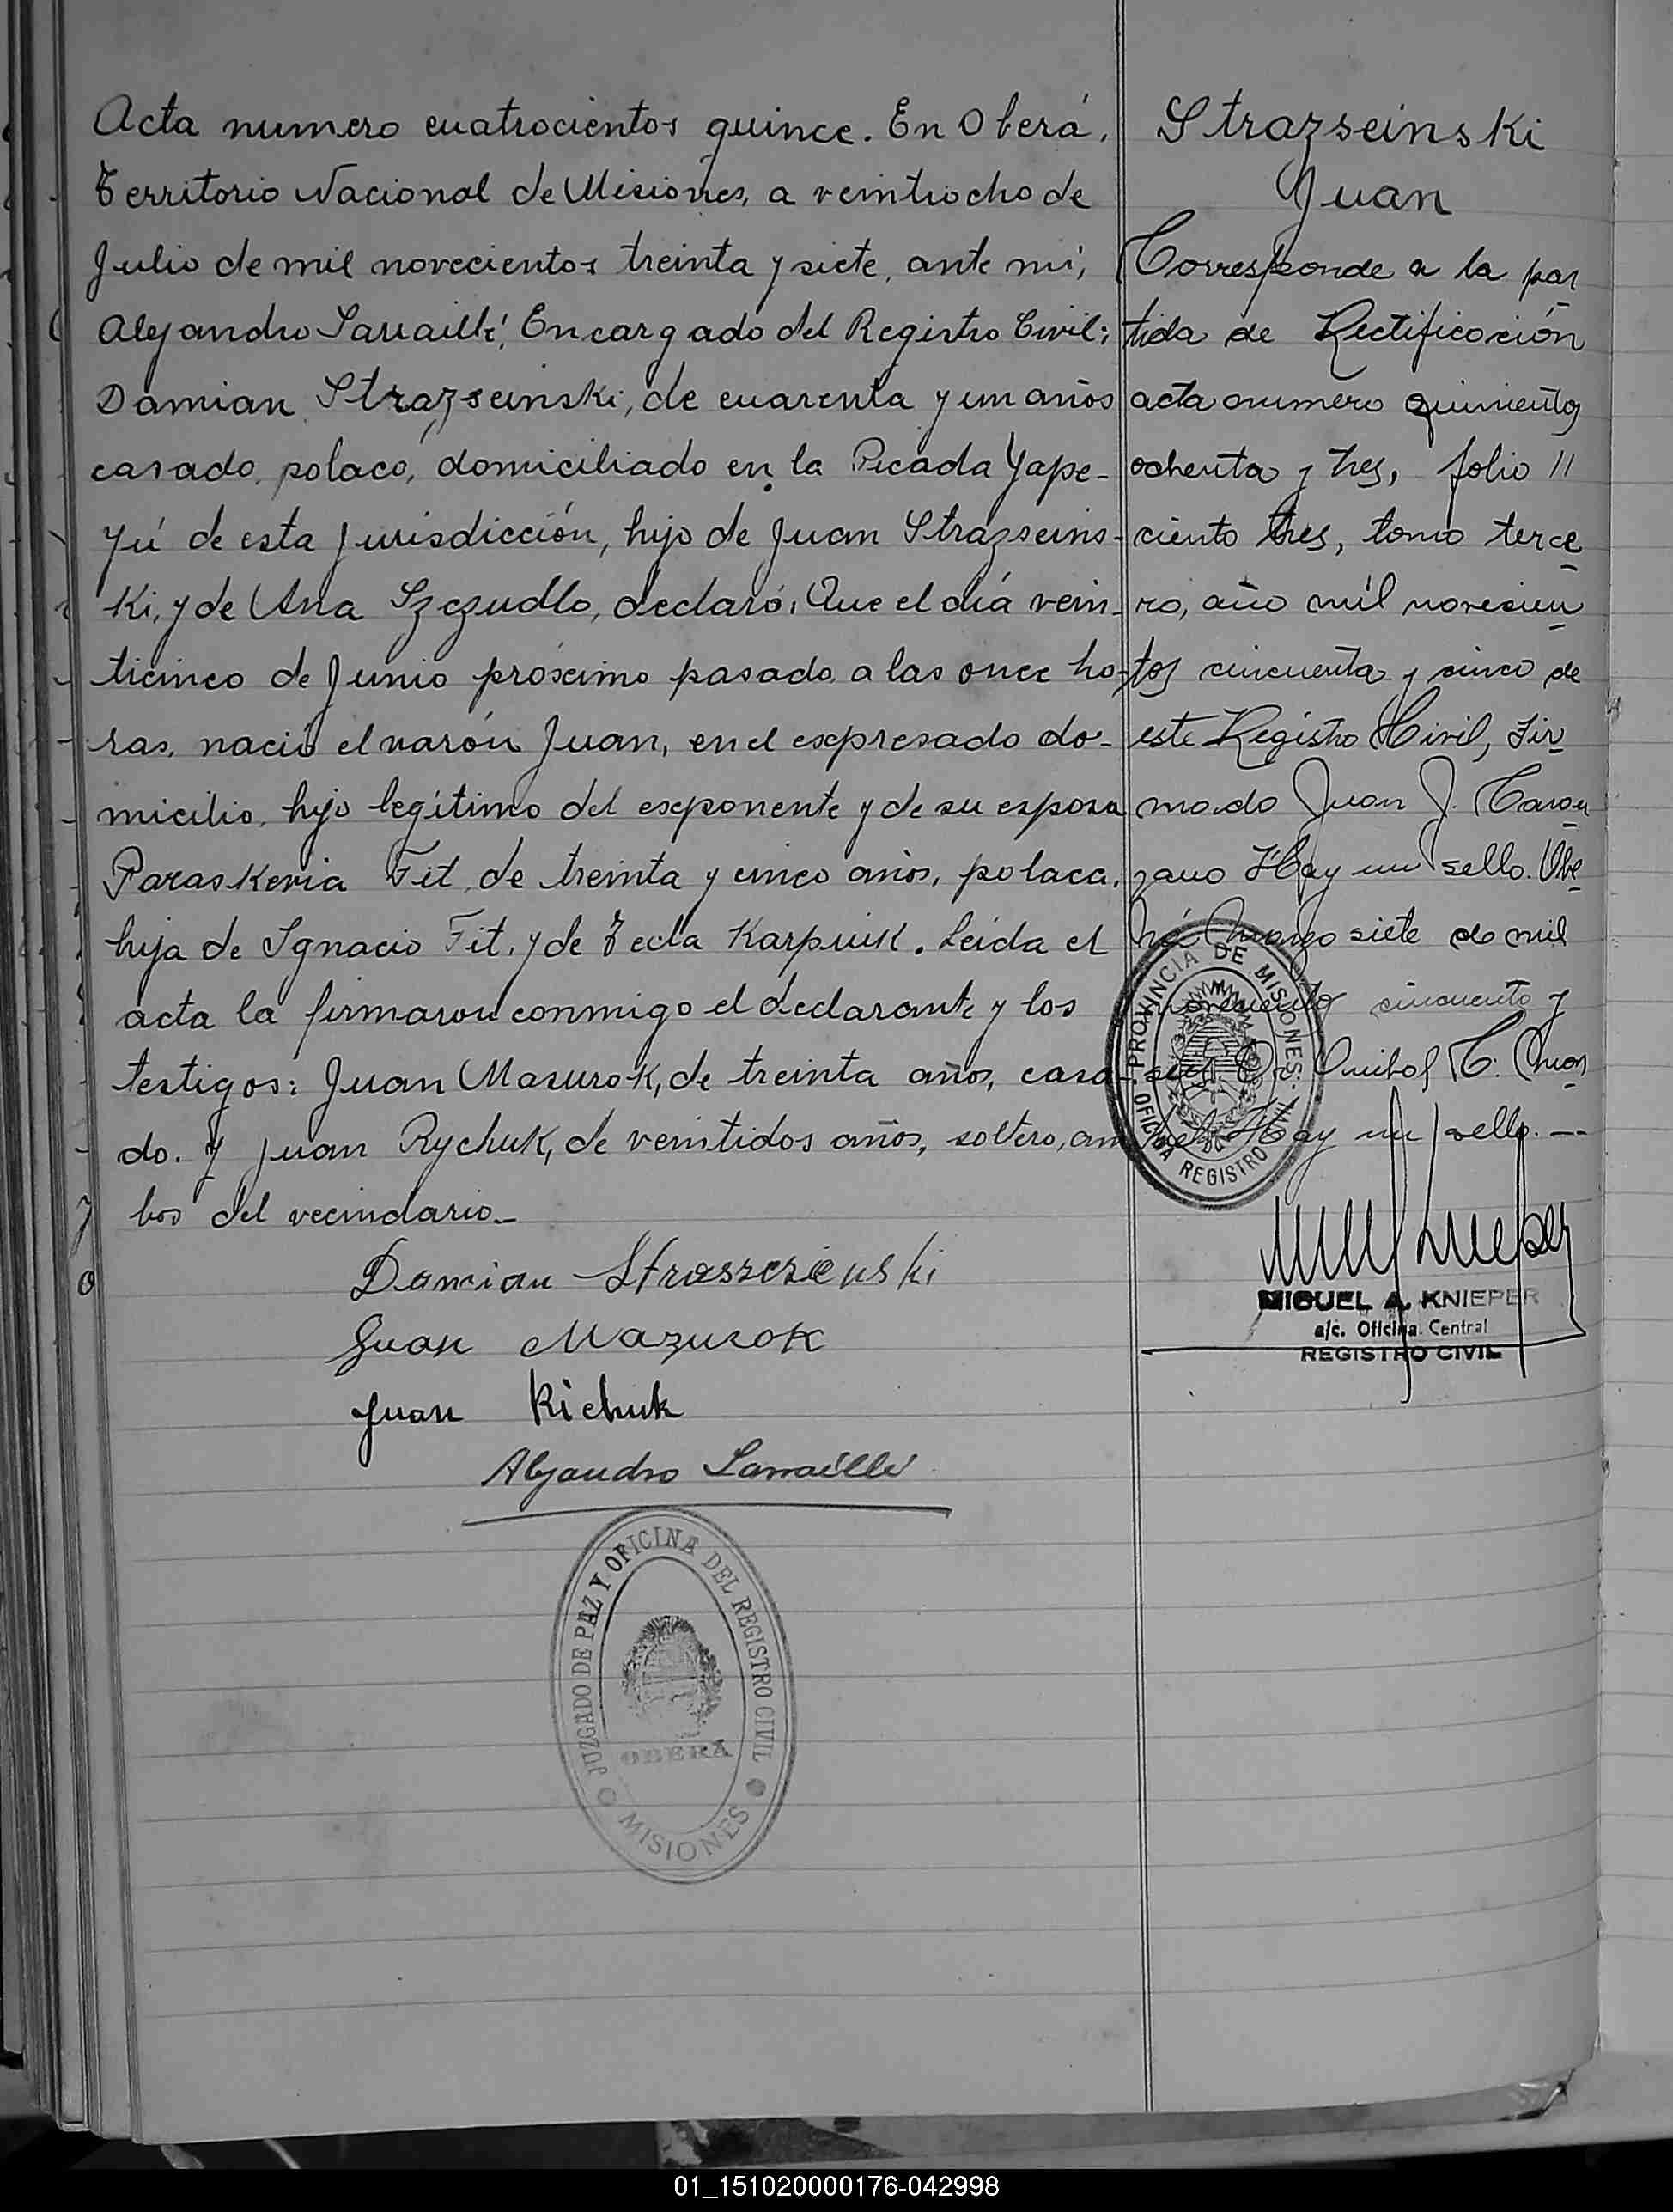 Acta numero cuatrocientos quince. En Oberá,
Territorio Nacional de Misiones, a veintiocho de
Julio de mil novecientos treinta y siete, ante mi,
Alejandro Sarraillé, Encargado del Registro Civil;
Damian Strazseinski, de cuarenta y un años
casado, polaco, domiciliado en la Picada Yape-
yú de esta jurisdicción, hijo de Juan Strazseins-
ki, y de Ana Szczudlo, declaró: Que el día vein-
ticinco de Junio próximo pasado a las once ho-
ras, nació el varón Juan, en el expresado do-
micilio, hijo legítimo del exponente y de su esposa
Paraskevia Fit, de treinta y cinco años, polaca,
hija de Ignacio Fit, y de Tecla Karpiuk. Leida el
acta la firmaron conmigo el declarante y los
testigos: Juan Masurok, de treinta años, casa-
do. Y Juan Rychuk, de veintidos años, soltero, am
bos del vecindario.-
Damian Strasscziewski
Juan Mazurok
Juan Richuk
Alejandro Sarraillé
JUZGADO DE PAZ Y OFICINA DEL REGISTRO CIVIL
OBERÁ
MISIONES
Strazseinski
Juan
Corresponde a la par
tida de Rectificación
acta numero quinientos
ochenta y tres, folio //
ciento tres, tomo terce
ro, año mil novesien
tos cincuenta y cinco de
este Registro Civil, Fir
mado Juan J. Caron
zano Hay un sello. Obe
rá Marzo siete de mil
novecientos cincuenta y
Hay un sello. --
PROVINCIA DE MISIONES
OFICINA REGISTRO CIVIL
MIGUEL A. KNIEPER
a/c. Oficina Central
REGISTRO CIVIL
01_151020000176-042998